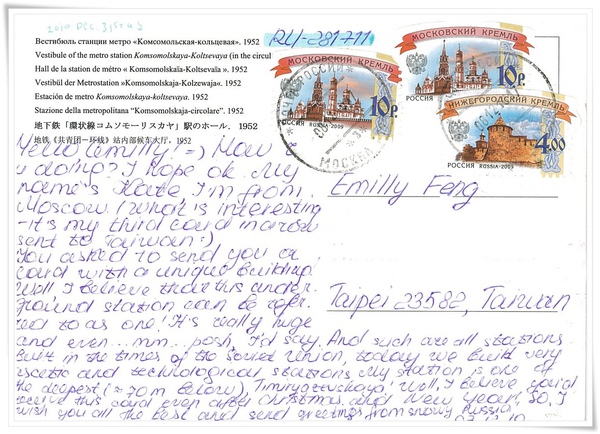 2010 Dec. 31st
Вестибюль станции метро «Комсомольская-кольцевая». 1952
Vestibule of the metro station Komsomolskaya-Koltsevaya (in the circul
Hall de la station de métro « Komsomolskaïa-Koltsevaïa ». 1952
Vestibül der Metrostation »Komsomolskaja-Kolzewaja«. 1952
Estación de metro Komsomolskaya-koltsevaya. 1952
Stazione della metropolitana "Comsomolskaja-circolare". 1952
地下鉄「環状線コムソモーリスカヤ」駅のホール. 1952
地铁《共青团一环线》站内部候车大厅, 1952
RU-281711
МОСКОВСКИЙ КРЕМЛЬ
10 р.
РОССИЯ RUSSIA·2009
МОСКОВСКИЙ КРЕМЛЬ
10 р.
РОССИЯ
НИЖЕГОРОДСКИЙ КРЕМЛЬ
4.00
РОССИЯ RUSSIA·2009
МОСКВА
Hello Emilly! =) How
u doing? I hope ok. My
name's Kate I'm from
Moscow. (What is interesting
- it's my third card in a row
sent to Taiwan :)
You asked to send you a
card with a unique building.
Well I believe that this under-
ground station can be refer-
red to as one! It's really huge
and even...mm...posh, I'd say. And such are all stations
built in the times of the Soviet Union, today we build very
and technological stations. My station is one of
the deepest (≈70m below), Timiryazevskaya. Well, I believe you'd
receive this card even after Christmas and New Year, so, I
wish you all the best and send greetings from snowy Russia
Emilly Feng
Taipei 23582, Taiwan